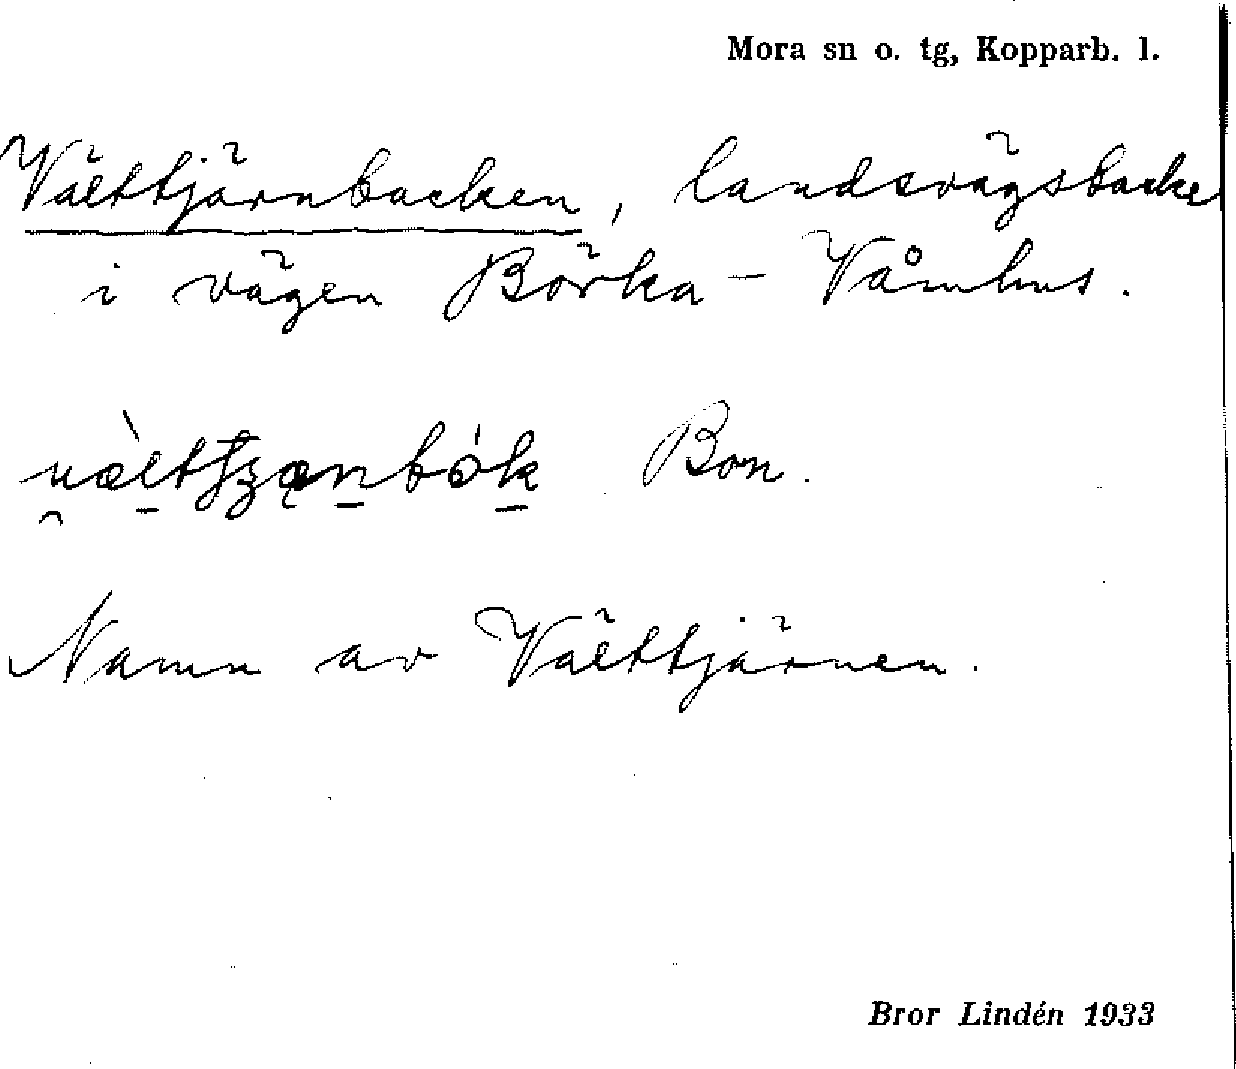 Mora sn o. tg, Kopparb. l.
Välttjärnbacken, landsvägsbacke
i vägen Börka - Våmhus.
Bon.
Namn av Välttjärnen.
Bror Lindén 1933